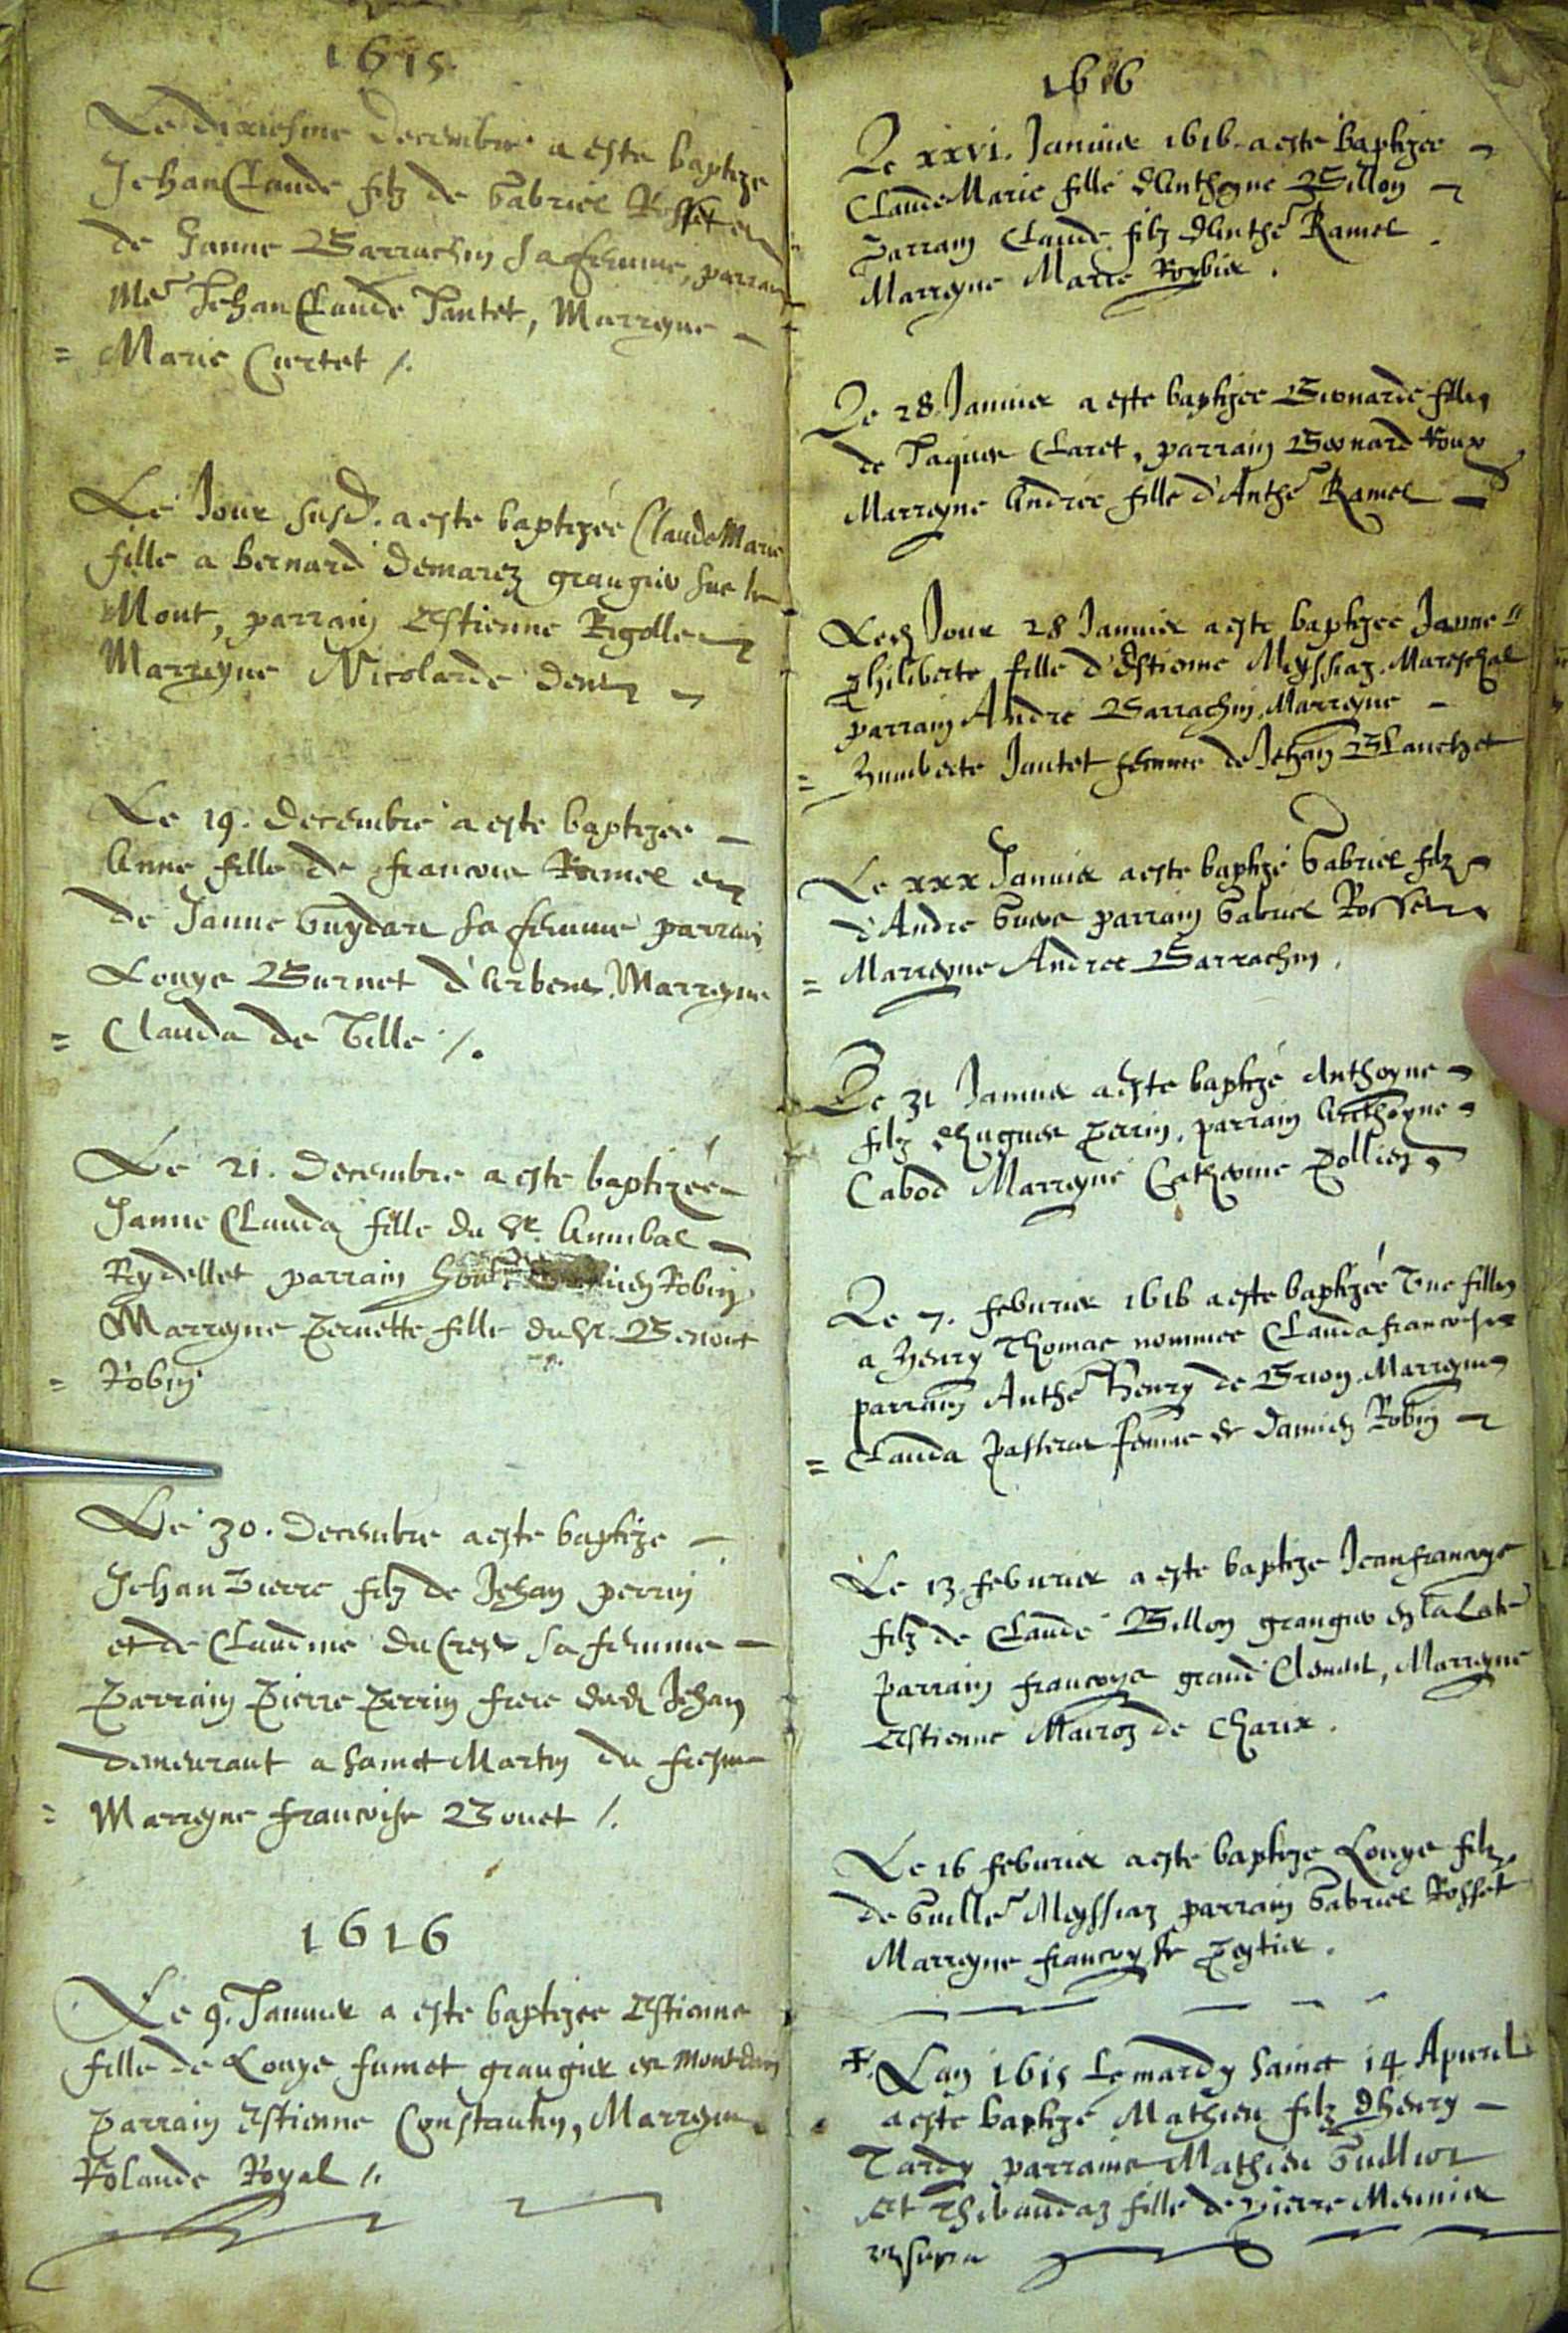 1615.
Le dixiesme Decembre a este baptize
Jehan Claude filz de Gabriel Rosset et
de Janne Barrachin sa femme, parrain
Me Jehan Claude Jantet, Marreyne
= Marie Curtet /.
Le Jour susd. a este baptizée Claude Marie
fille a Bernard Demarez grangier sur le
Mont, parrain Estienne Rigollet
Marreyne Nicolarde
Le 19. Decembre a este baptizee
Anne fille de francois Ramel et
de Janne Guydard sa femme parrain
Louys Burnet d'Arbent, Marreyne
= Clauda de Ville /.
Le 21. Decembre a este baptizée
Janne Clauda fille du Sr. Annibal
Reydellet parrain Robin
Marreyne Pernette fille du Sr. Benoit
= Robin
Le 30. Decembre a este baptize
Jehan Pierre filz de Jehan perrin
et de Claudine DuCrest sa femme
Parrain Pierre Perrin frere dud. Jehan
demeurant a Sainct Martin du fresne
= Marreyne francoise Bonet /.
1616
Le 9. Januier a este baptizee Estienne
fille de Louys fumet grangier
Parrain Estienne Constantin, Marreyne
Rolande Royal /.
1616
Le xxvi. Januier 1616 a este baptizee
Claude Marie fille d'Anthoyne Billon
Parrain Claude filz d'Anthe Ramel
Marreyne Marie Roybier.
Le 28. Januier a este baptizee Bernarde fille
de Jaques Claret, parrain Bernard roux
Marreyne Andree fille d'Anthe Ramel
Led. Jour 28 Januier a este baptizee Janne
Philiberte fille d'Estienne Meyssiaz Mareschal
parrain Andre Barrachin, Marreyne
= Humberte Jantet femme de Jehan Blanchet
Le xxx Januier a este baptizé Gabriel filz
d'Andre parrain Gabriel Rosset
= Marreyne Andree Barrachin.
Le 31 Januier a este baptizé Anthoyne
filz d'Hugues Perrin, parrain Anthoyne
Cabod Marreyne Catherine Pollier
Le 7. feburier 1616 a este baptizée Vne fille
a Henry Thomas nommee Clauda francoise
parrain Anthe Henry de Brion, Marreyne
= Clauda Passerat femme de Daniel Robin
Le 13. feburier a este baptize Jean francoys
filz de Claude Billon grangier
parrain francoys grand Clement, Marreyne
Estienne Mairoz de Charix.
Le 16 feburier a este baptize Louys filz
de Guille Meyssiaz parrain Gabriel Rosset
Marreyne francoyse Peytier.
Lan 1615 Le mardy Sainct 14 Apuril
a este baptizé Mathieu filz d'henry
Tardy parrains Mathieu Guilliot
Et Thibaudaz fille de pierre Meunier